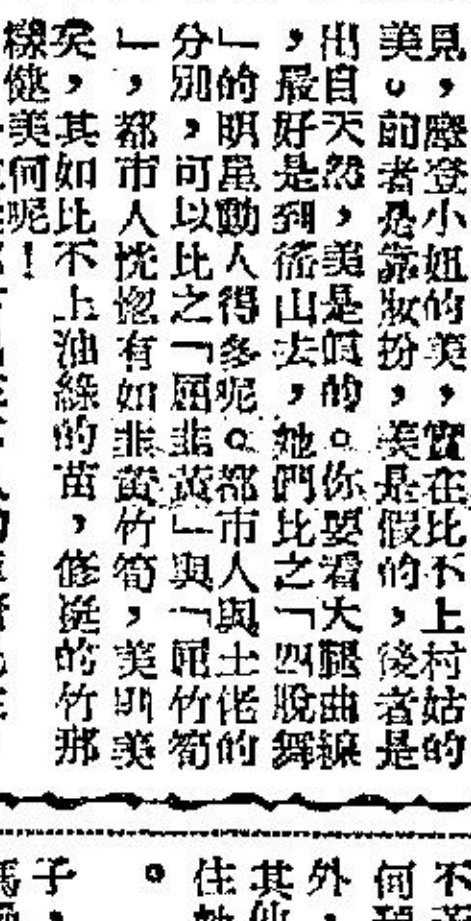 見，摩登小姐的美，實在比不上村姑的
美。前者是靠妝扮，美是假的，後者是
出自天然，美是眞的。你要看大腿曲線
，最好是到徭山去，她們比之「四脫舞
」的明星動人得多呢。都市人與土佬的
分別，可以比之「屈韭黃」與「屈竹筍
」，都市人恍惚有如韭黃竹筍，美則美
矣，其如比不上油綠的苗，修挺的竹那
樣健美何呢！
不
何
外，
其他
住
。
子，
馬